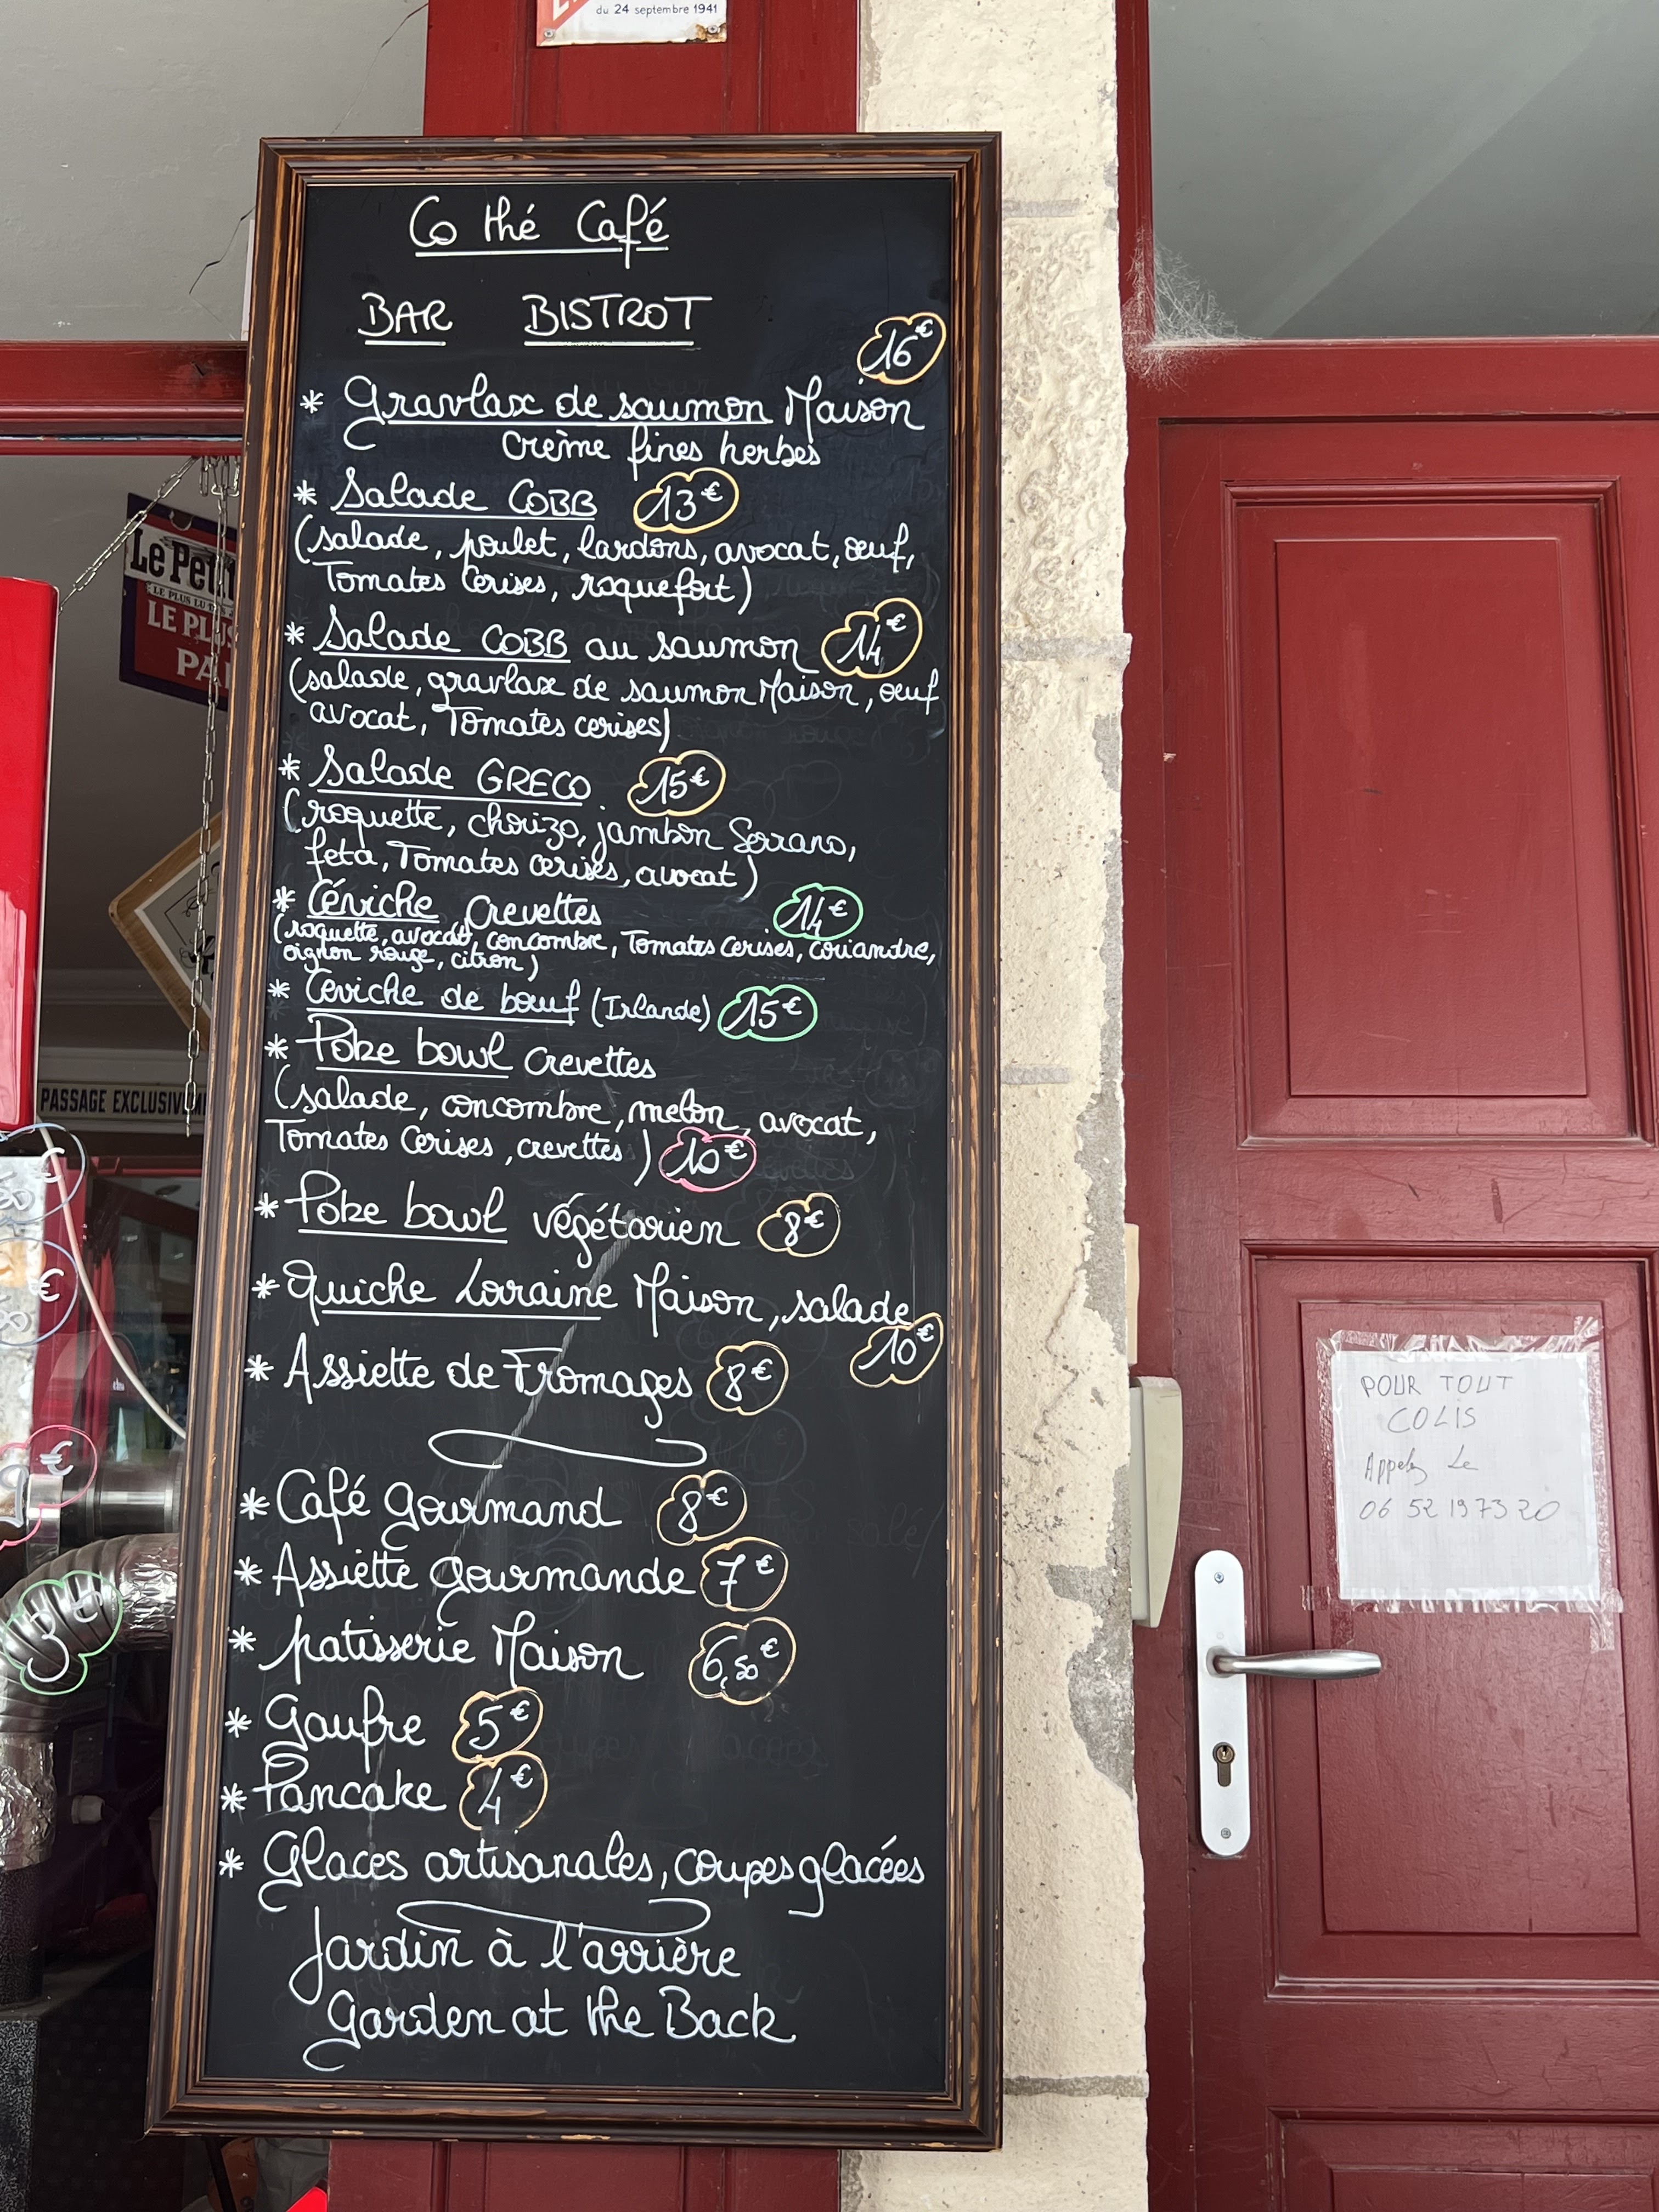 du 24 septembre 1941
Co thé Café
BAR BISTROT
16€
* Gravlax de saumon Maison
crème fines herbes
* Salade COBB 13€
(salade, poulet, lardons, avocat, œuf,
Tomates Cerises, roquefort)
* Salade COBB au saumon 14€
(salade, gravlax de saumon Maison, œuf
avocat, Tomates cerises)
* Salade GRECO 15€
(roquette, chorizo, jambon Serrano,
feta, Tomates cerises, avocat)
* Céviche Crevettes 14€
(roquette, avocat, concombre, Tomates Cerises, coriandre,
oignon rouge, citron)
* Ceviche de bœuf (Irlande) 15€
* Poke bowl Crevettes
(salade, concombre, melon, avocat,
Tomates Cerises, crevettes) 10€
* Poke bowl végétarien 8€
* Quiche Lorraine Maison, salade
10€
* Assiette de Fromages 8€
* Café gourmand 8€
* Assiette gourmande 7€
* patisserie Maison 6,50€
* Gaufre 5€
* Pancake 4€
* Glaces artisanales, coupes glacées
Jardin à l'arrière
Garden at the Back
Le Peti
LE PLUS LU
LE PLUS
PA
PASSAGE EXCLUSIVEM
€
8
€
8
€
3€
POUR TOUT
COLIS
Appelez Le
06 52 19 73 20